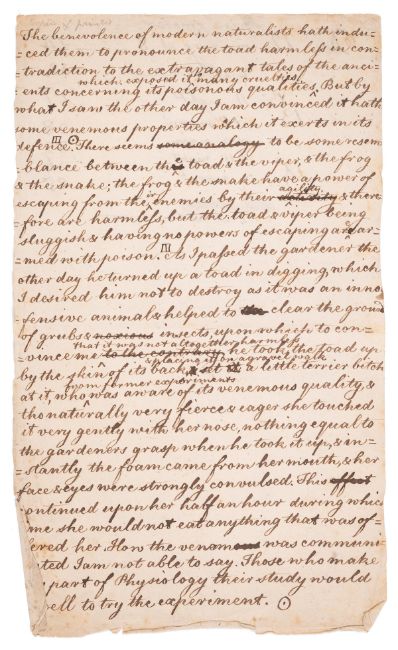 The benevolence of modern naturalists hath indu=
=ced them to pronounce the toad harmless in con=
tradiction to the extravagant tales of the anci=
which exposed it many cruelties
ents concerning its poisonous qualities. But by
what I saw the other day I am convinced it hath
some venemous properties which it exerts in its
defence. There seems some analogy to be some resem
-blance between the toad & the viper, & the frog
& the snake; the frog & the snake have a power of
agility
escaping from their enemies by their & there
fore are harmless, but the toad & viper being
sluggish & having no powers of escaping are ar=
=med with poison. As I passed the gardener the
other day he turned up a toad in digging, which
I desired him not to destroy as it was an inno
=fensive animal & helped to clear the ground
of grubs & noxious insects, upon which to con=
that it was not altogether harmless
=vince me to the contrary he took the toad up
& placing it on a gravel walk
by the skin of its back & set a little terrier bitch
from former experiments
at it, who was aware of its venemous quality, &
tho naturally very fierce & eager she touched
it very gently with her nose, nothing equal to
the gardeners grasp when he took it up, & in=
=stantly the foam came from her mouth, & her
face & eyes were strongly convulsed. This effect
continued upon her half an hour during which
me she would not eat anything that was of=
fered her. How the venom was communi
cated I am not able to say. Those who make
part of Physiology their study would
well to try the experiment.